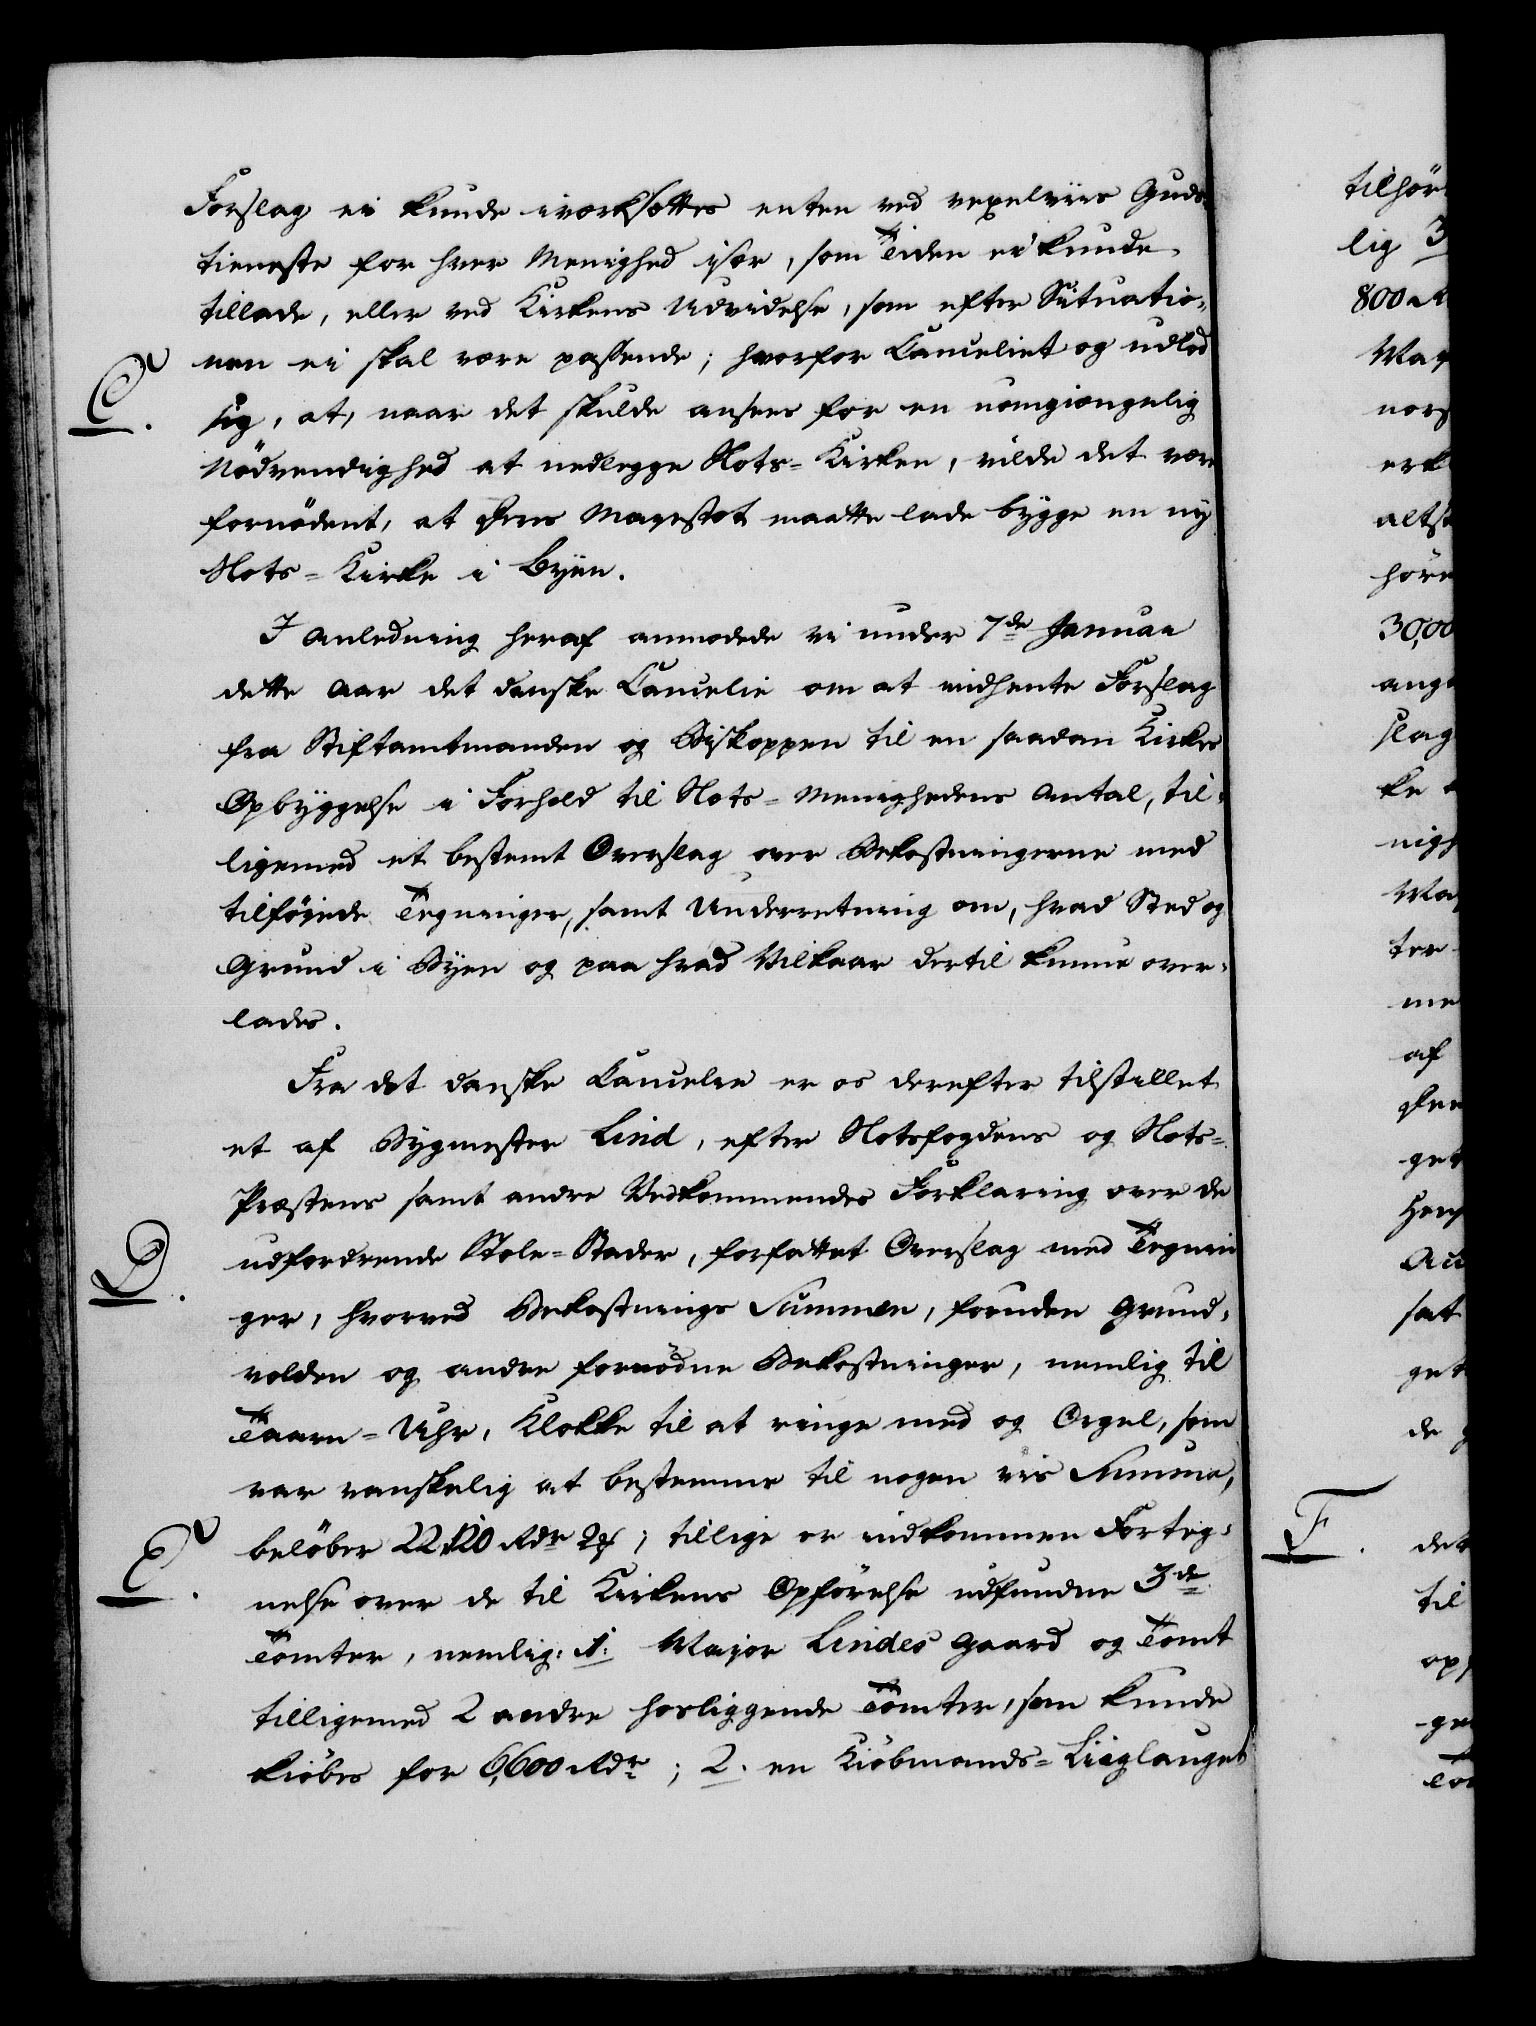 Forslag ei kunde iværksættes enten ved vexelviis Guds-
tieneste for hver Menighed især, som Tiden ei kunde
tillade, eller ved Kirkens Udvidelse, som efter Situatio-
nen ei skal være passende; hvorfor Cancelliet og udlod
C. sig, at, naar det skulde ansees for en uomgiængelig
Nödvendighed at nedlegge Slots-Kirken, vilde det være
fornödent, at Deres Majestæt maatte lade bygge en ny
Slots-Kirke i Byen.
I Anledning heraf anmodede vi under 7de Januar
dette Aar det danske Cancelie om at indhente Forslag
fra Stiftamtmanden og Biskoppen til en saadan Kirkes
Opbyggelse i Forhold til Slots-Menighedens Antal, til-
ligemed et bestemt Overslag over Bekostningerne med
tilföjede Tegninger, samt Underretning om, hvad Sted og
Grund i Byen og paa hvad Vilkaar dertil kunne over-
lades.
Fra det danske Cancelie er os derefter tilstillet
et af Bygmester Lind, efter Slotsfogdens og Slots-
Præstens samt andre Vedkommendes Forklaring over de
D. udfordrende Stole-Stader, forfattet Overslag med Tegnin
ger, hvorved Bekostnings Summen, foruden Grund-
volden og andre fornödne Bekostninger, nemlig til
Taarn-Uhr, Klokke til at ringe med og Orgel, som
var vanskelig at bestemme til nogen vis Summa,
E. belöber 22,120 Rdr 2 ß; tillige er indkommen Forteg-
nelse over de til Kirkens Opförelse udfundne 3de
Tomter, nemlig: 1. Major Lindes Gaard og Tomt
tilligemed 2 andre hosliggende Tomter, som kunde
kiöbes for 6,600 Rdr; 2. en Kiöbmands-Liiglauget
tilhör
lig 3
800 R
Maj
nors
erk
altsa
höre
30,00
ang
slag
ke
nigh
Maj
ter
me
af
Der
get
Hen
Au
sat
get
de
F. det
til
op
ge
To